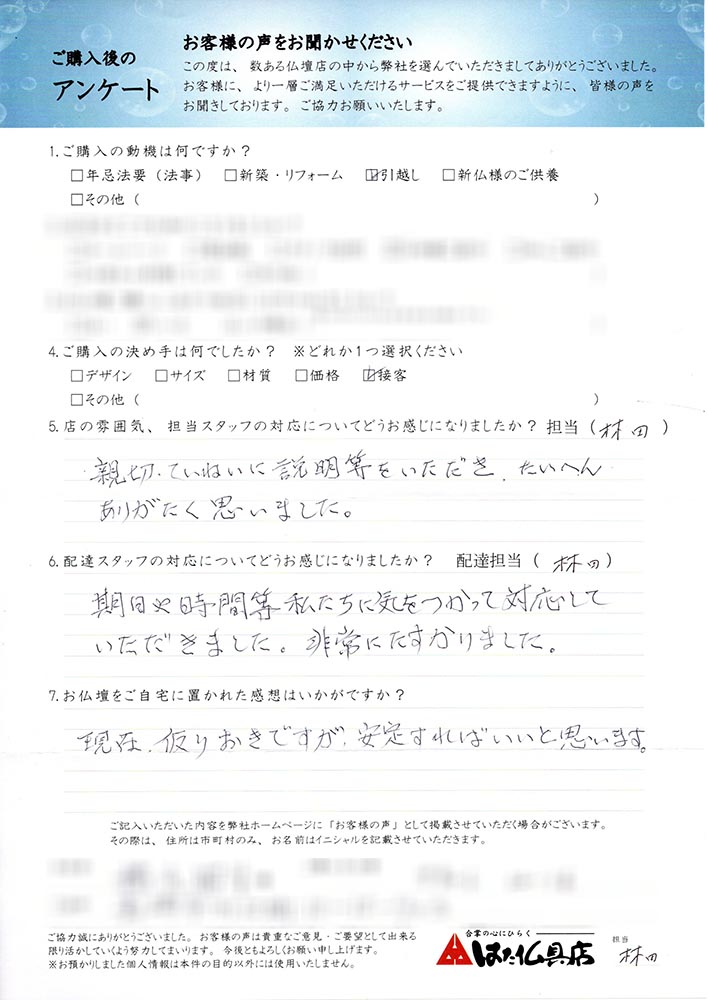 ご購入後の
アンケート
お客様の声をお聞かせください
この度は、数ある仏壇店の中から弊社を選んでいただきましてありがとうございました。
お客様に、より一層ご満足いただけるサービスをご提供できますように、皆様の声を
お聞きしております。ご協力お願いいたします。
1.ご購入の動機は何ですか?
□年忌法要(法事) □新築・リフォーム ☑引越し □新仏様のご供養
□その他( )
4.ご購入の決め手は何でしたか? ※どれか1つ選択ください
□デザイン □サイズ □材質 □価格 ☑接客
□その他( )
5.店の雰囲気、担当スタッフの対応についてどうお感じになりましたか? 担当(林田)
親切、ていねいに説明等をいただき、たいへん
ありがたく思いました。
6.配達スタッフの対応についてどうお感じになりましたか? 配達担当(林田)
期日や時間等私たちに気をつかって対応して
いただきました。非常にたすかりました。
7.お仏壇をご自宅に置かれた感想はいかがですか?
現在、仮りおきですが、安定すればいいと思います。
ご記入いただいた内容を弊社ホームページに「お客様の声」として掲載させていただく場合がございます。
その際は、住所は市町村のみ、お名前はイニシャルを記載させていただきます。
ご協力誠にありがとうございました。お客様の声は貴重なご意見・ご要望として出来る
限り活かしていくよう努力してまいります。今後ともよろしくお願い申し上げます。
※お預かりしました個人情報は本件の目的以外には使用いたしません。
合掌の心にひらく
はた仏具店
担当
林田